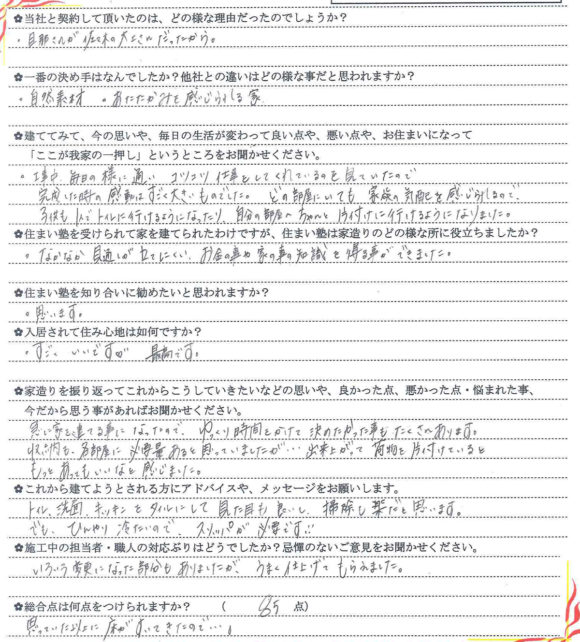 ✿当社と契約して頂いたのは、どの様な理由だったのでしょうか？
・旦那さんが佐々木の大工さんだったから。
✿一番の決め手はなんでしたか？他社との違いはどの様な事だと思われますか？
・自然素材 ・あたたかみを感じられる家
✿建ててみて、今の思いや、毎日の生活が変わって良い点や、悪い点や、お住まいになって
「ここが我家の一押し」というところをお聞かせください。
・工事中、毎日の様に通い コツコツ仕事をしてくれているのを見ていたので
完成した時の感動はすごく大きいものでした。どの部屋にいても、家族の気配を感じられるので、
子供も1人でトイレに行けるようになったり、自分の部屋へちゃんと片付けに行けるようになりました。
✿住まい塾を受けられて家を建てられたわけですが、住まい塾は家造りのどの様な所に役立ちましたか？
・なかなか見通しが立てにくい、お金の事や家の事の知識を得る事ができました。
✿住まい塾を知り合いに勧めたいと思われますか？
・思います。
✿入居されて住み心地は如何ですか？
・すごくいいですが 最高です。
✿家造りを振り返ってこれからこうしていきたいなどの思いや、良かった点、悪かった点・悩まれた事、
今だから思う事があればお聞かせください。
急に家を建てる事になったので、ゆっくり時間をかけて決めたかった事もたくさんあります。
収納も、各部屋に必要量あると思っていましたが… 出来上がって荷物を片付けていると
もっとあってもいいなと感じました。
✿これから建てようとされる方にアドバイスや、メッセージをお願いします。
トイレ、洗面、キッチンをタイルにして見た目も良いし、掃除し楽だと思います。
でも、ひんやり冷たいので、スリッパが必要です!!
✿施工中の担当者・職人の対応ぶりはどうでしたか？忌憚のないご意見をお聞かせください。
いろいろ変更になった部分もありましたが、うまく仕上げてもらえました。
✿総合点は何点をつけられますか？ （ 85 点）
思っていた以上に床がすいてきたので…。